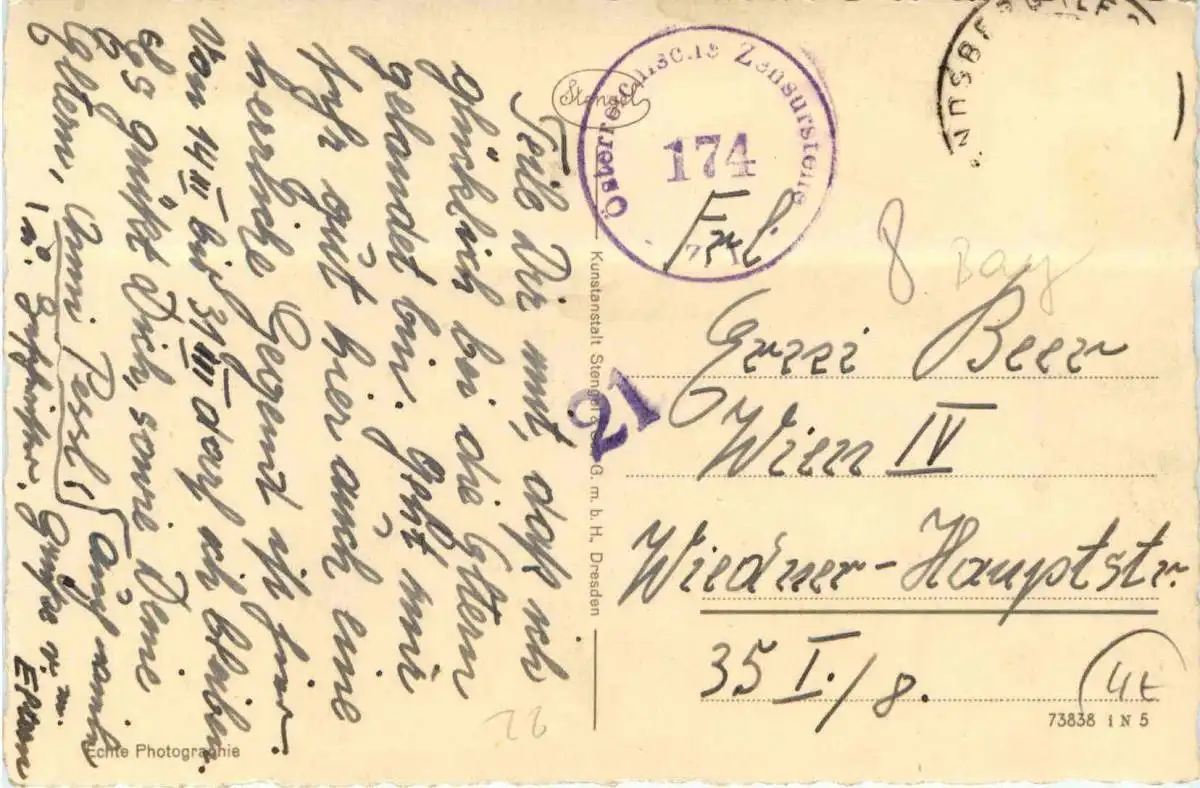 Teile Dir mit, daß ich
glücklich bei die Eltern
gelandet bin. Geht mir
sehr gut hier auch eine
herrliche Gegend ist hier.
Von 14 III bis 31 III darf ich bleiben.
Es grüßt Dich, sowie Deine
Eltern, Ammi
Auf
Grüße v. m.
Eltern
Stengel
Kunstanstalt Stengel & Co. G. m. b. H., Dresden
Echte Photographie
Österreichische Zensurstelle
174
21
8 Bay
Frl
Grezi Beer
Wien IV
Wiedner-Hauptstr.
35 I./8.
4t
73838 i N 5
22